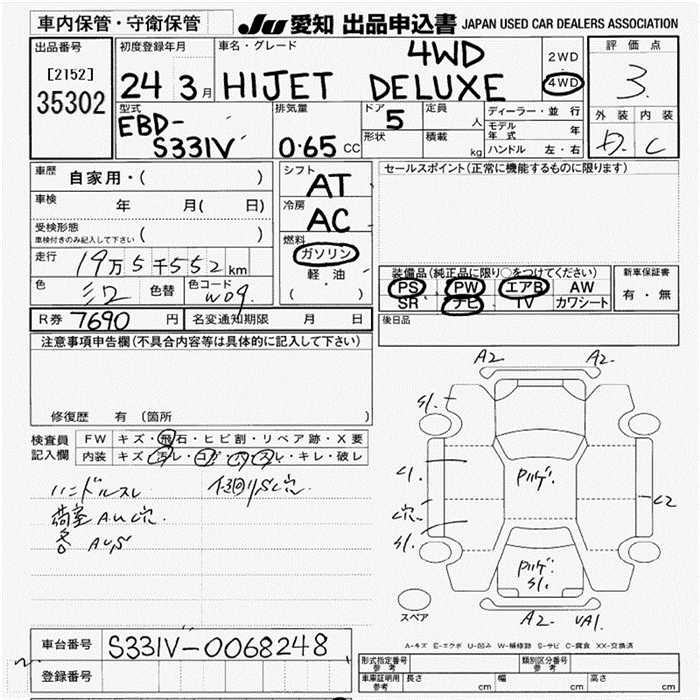 車内保管・守衛保管
JU 愛知 出品申込書 JAPAN USED CAR DEALERS ASSOCIATION
出品番号
[2152]
35302
初度登録年月
24 3月
車名・グレード
4WD
HIJET DELUXE
2WD
4WD
評価点
3.
外装 内装
D. C
型式
EBD-
S331V
排気量
0.65 CC
ドア
5
形状
定員
人
積載
kg
ディーラー・並行
モデル年式 年
ハンドル 左・右
車歴 自家用・( )
車検 年 月( 日)
受検形態
車検付きのみ記入して下さい ( )
走行 19万5千552km
色 シロ 色替 色コード W09
シフト
AT
冷房
AC
燃料
ガソリン
軽・油
( )
セールスポイント(正常に機能するものに限ります)
装備品(純正品に限り○をつけてください)
PS PW エアB AW
SR ナビ TV カワシート
新車保証書
有・無
R券 7690 円 名変通知期限 月 日
後日品
注意事項申告欄(不具合内容等は具体的に記入して下さい)
修復歴 有 (箇所 )
検査員
記入欄
FW キズ・飛石・ヒビ割・リペア跡・X要
内装 キズ・汚レ・コゲ・ハスレ・キレ・破レ
ハンドルスレ
荷室AUC穴.
各 AUS
A2 A2.
S1.
C1.
C穴.
S1.
C2
P山ゲ.
P山ゲ.
S1.
A2 UA1.
スペア
A-キズ E-エクボ U-凹み W-補修跡 S-サビ C-腐食 XX-交換済
車台番号 S331V-0068248
登録番号
形式指定番号
参考
類別区分番号
参考
車庫証明用
参考
長さ cm 幅 cm 高さ cm